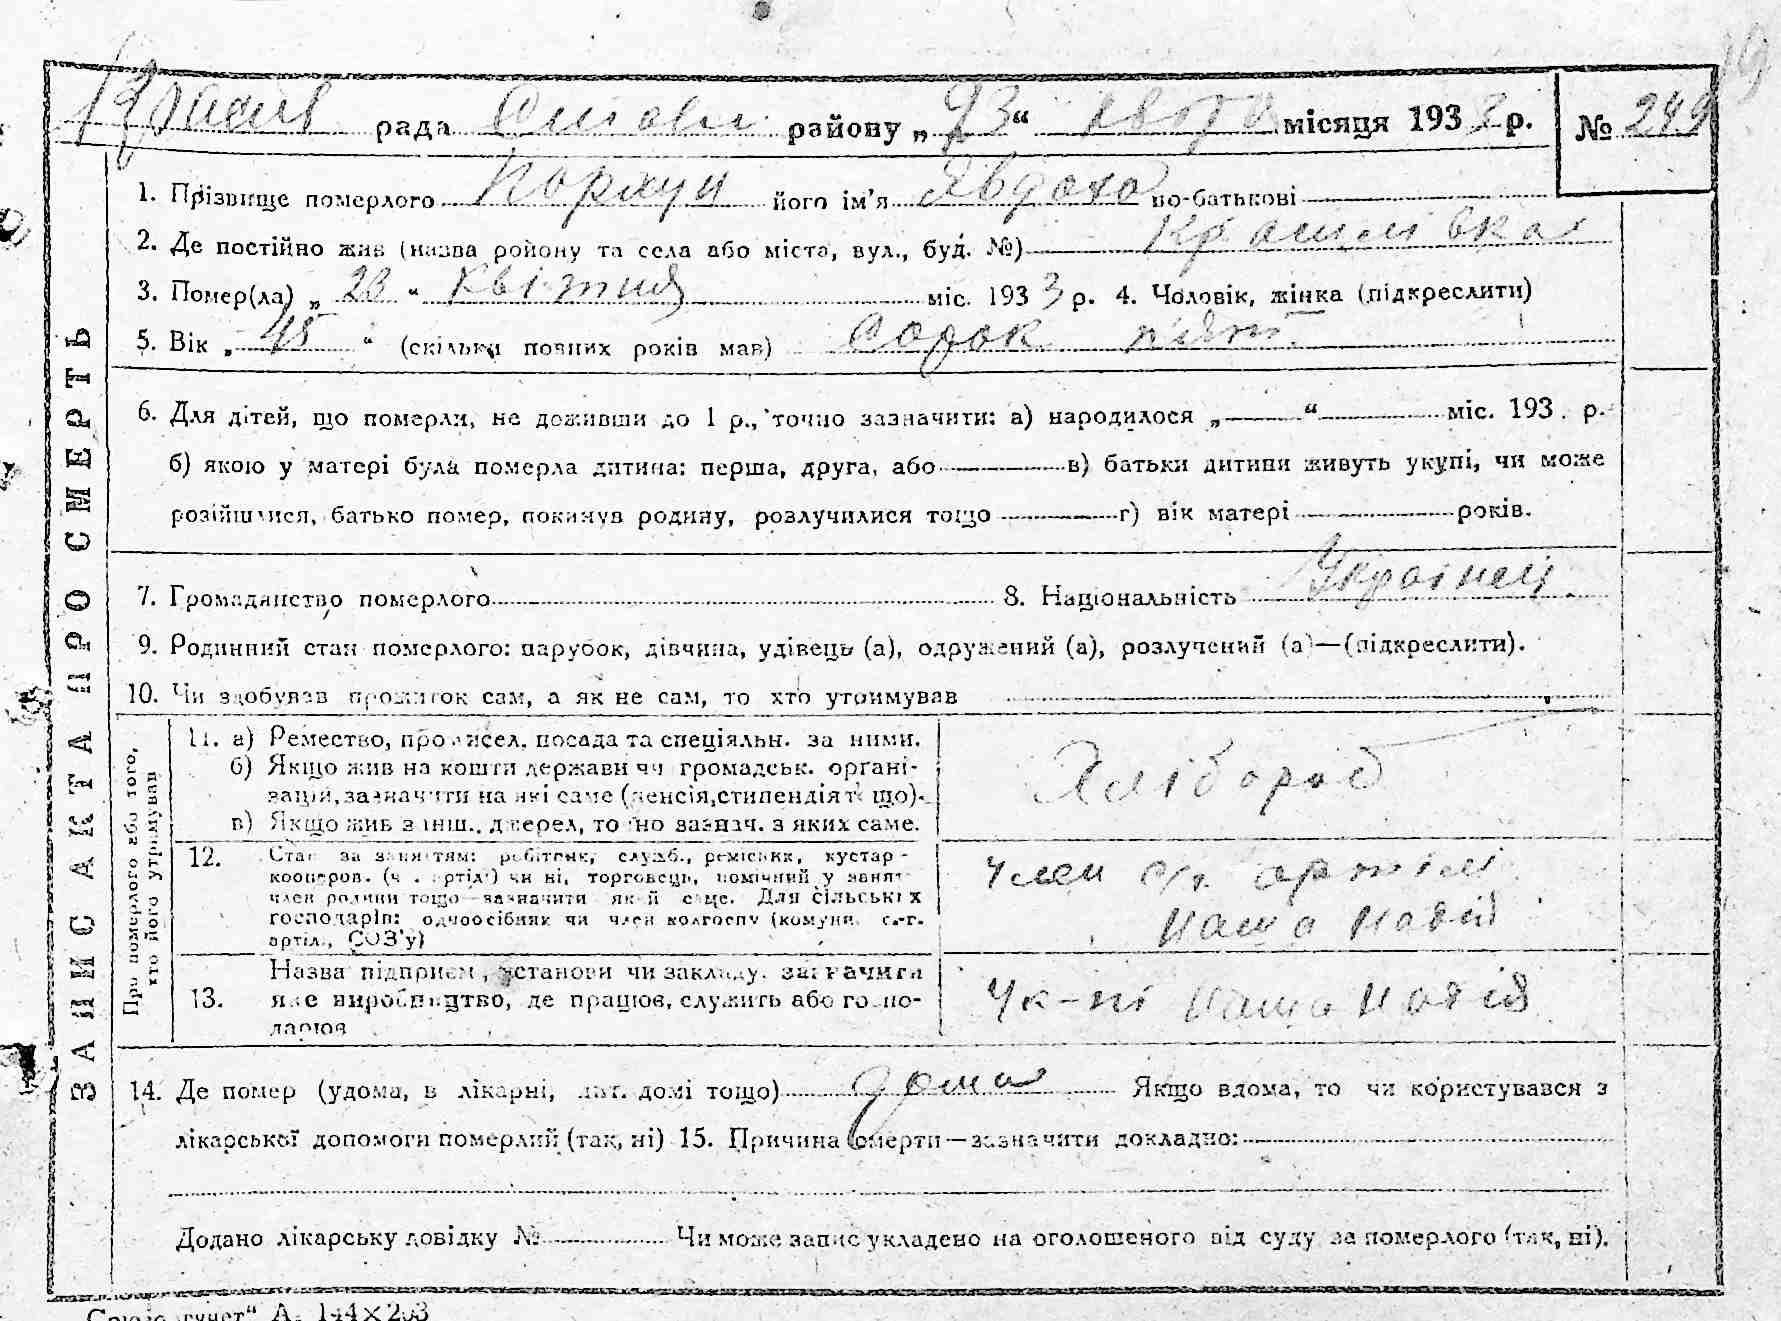 рада району „ 23 “ місяця 1933 р. № 249
1. Прізвище померлого його ім’я Явдоха по-батькові
2. Де постійно жив (назва ройону та села або міста, вул., буд. №) Красилівка
3. Помер(ла) „ 23 “ квітня міс. 1933 р. 4. Чоловік, жінка (підкреслити)
5. Вік „ 45 “ (скільки повних років мав) сорок пять
6. Для дітей, що померли, не доживши до 1 р., точно зазначити: а) народилося „ “ міс. 193 . р.
б) якою у матері була померла дитина: перша, друга, або в) батьки дитини живуть укупі, чи може
розійшлися, батько помер, покинув родину, розлучилися тощо г) вік матері років.
7. Громадянство померлого 8. Національність Українец
9. Родинний стан померлого: парубок, дівчина, удівець (а), одружений (а), розлучений (а)—(підкреслити).
10. Чи здобував прожиток сам, а як не сам, то хто утримував
ЗАПИС АКТА ПРО СМЕРТЬ
При померлого або того,
хто його утримував
11. а) Ремество, промисел, посада та спеціяльн. за ними.
б) Якщо жив на кошти держави чи громадськ. органі-
зацій, зазначити на які саме (пенсія, стипендія т що).
в) Якщо жив з інш., джерел, то но зазнач. з яких саме.
Хлібороб
12. Стан за заняттям: робітник, служб., ремісник, кустар -
кооперов. (ч . артілі) чи ні, торговець, помічний у занят
член родини тощо—зазначити який саме. Для сільських
господарів: одноосібник чи член колгоспу (комуни, с.-г.
артілі, СОЗ’у)
Член с/г. артілі
Наша Надія
13. Назва підприєм , установи чи закладу, зазначити
яке виробництво, де працюв, служить або госпо-
дарюв
Наша Надія
14. Де помер (удома, в лікарні, пат. домі тощо) дома Якщо вдома, то чи користувався з
лікарської допомоги померлий (так, ні) 15. Причина смерти—зазначити докладно:
Додано лікарську довідку № Чи може запис укладено на оголошеного від суду за померлого (так, ні).
А. 144×203